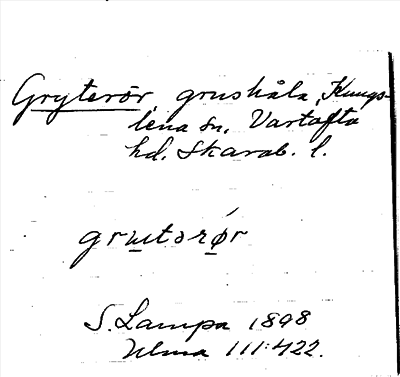 Gryterör, grushåla, Kungs-
lena sn, Vartofta
hd. Skarab. l.
grʉtərǿr
S. Lampa 1898
Ulma 111:422.